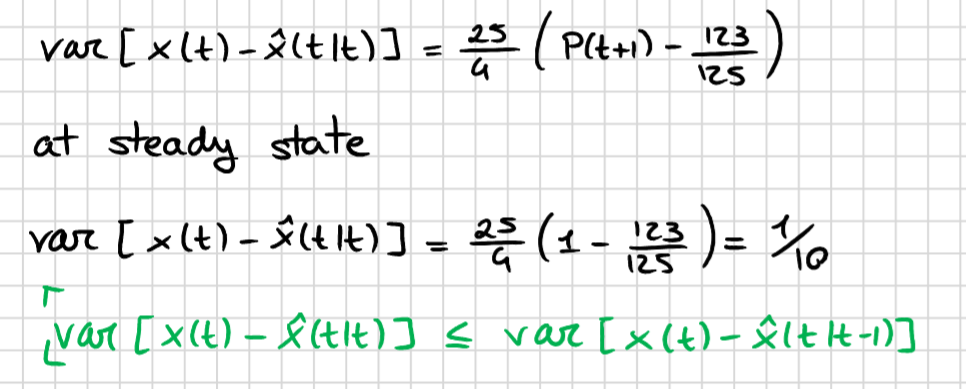 var [ x(t) - x̂(t|t) ] = 25/4 ( P(t+1) - 123/125 )
at steady state
var [ x(t) - x̂(t|t) ] = 25/4 ( 1 - 123/125 ) = 1/10
var [ x(t) - x̂(t|t) ] ≤ var [ x(t) - x̂(t|t-1) ]